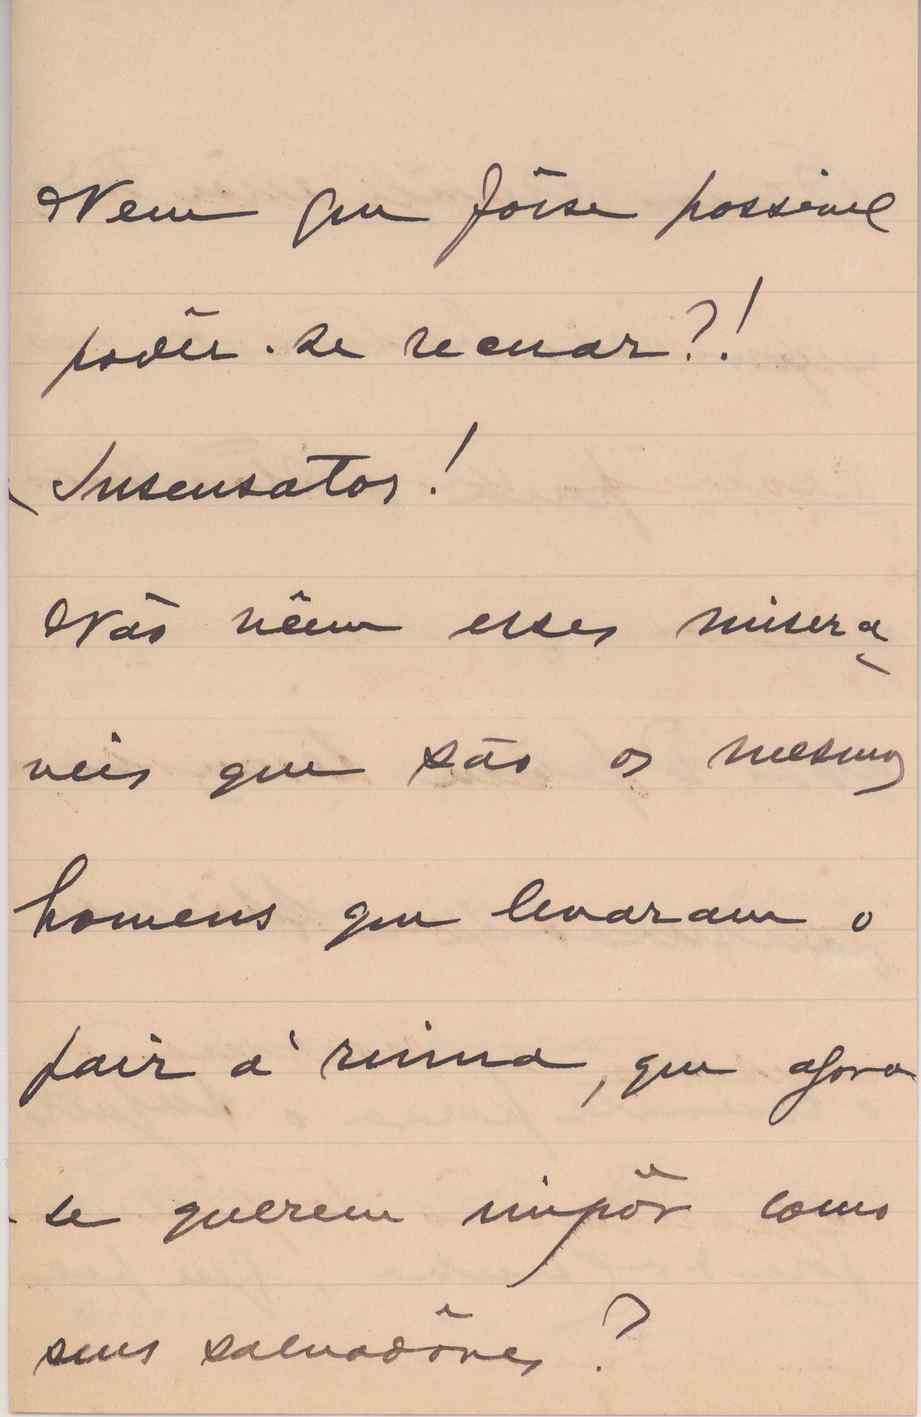 Nem que fôsse possivel
podêr-se recuar?!
Insensatos!
Não vêem esses misera
veis que são os mesmos
homens que levaram o
paiz à ruina, que agora
se querem impôr como
seus salvadôres?